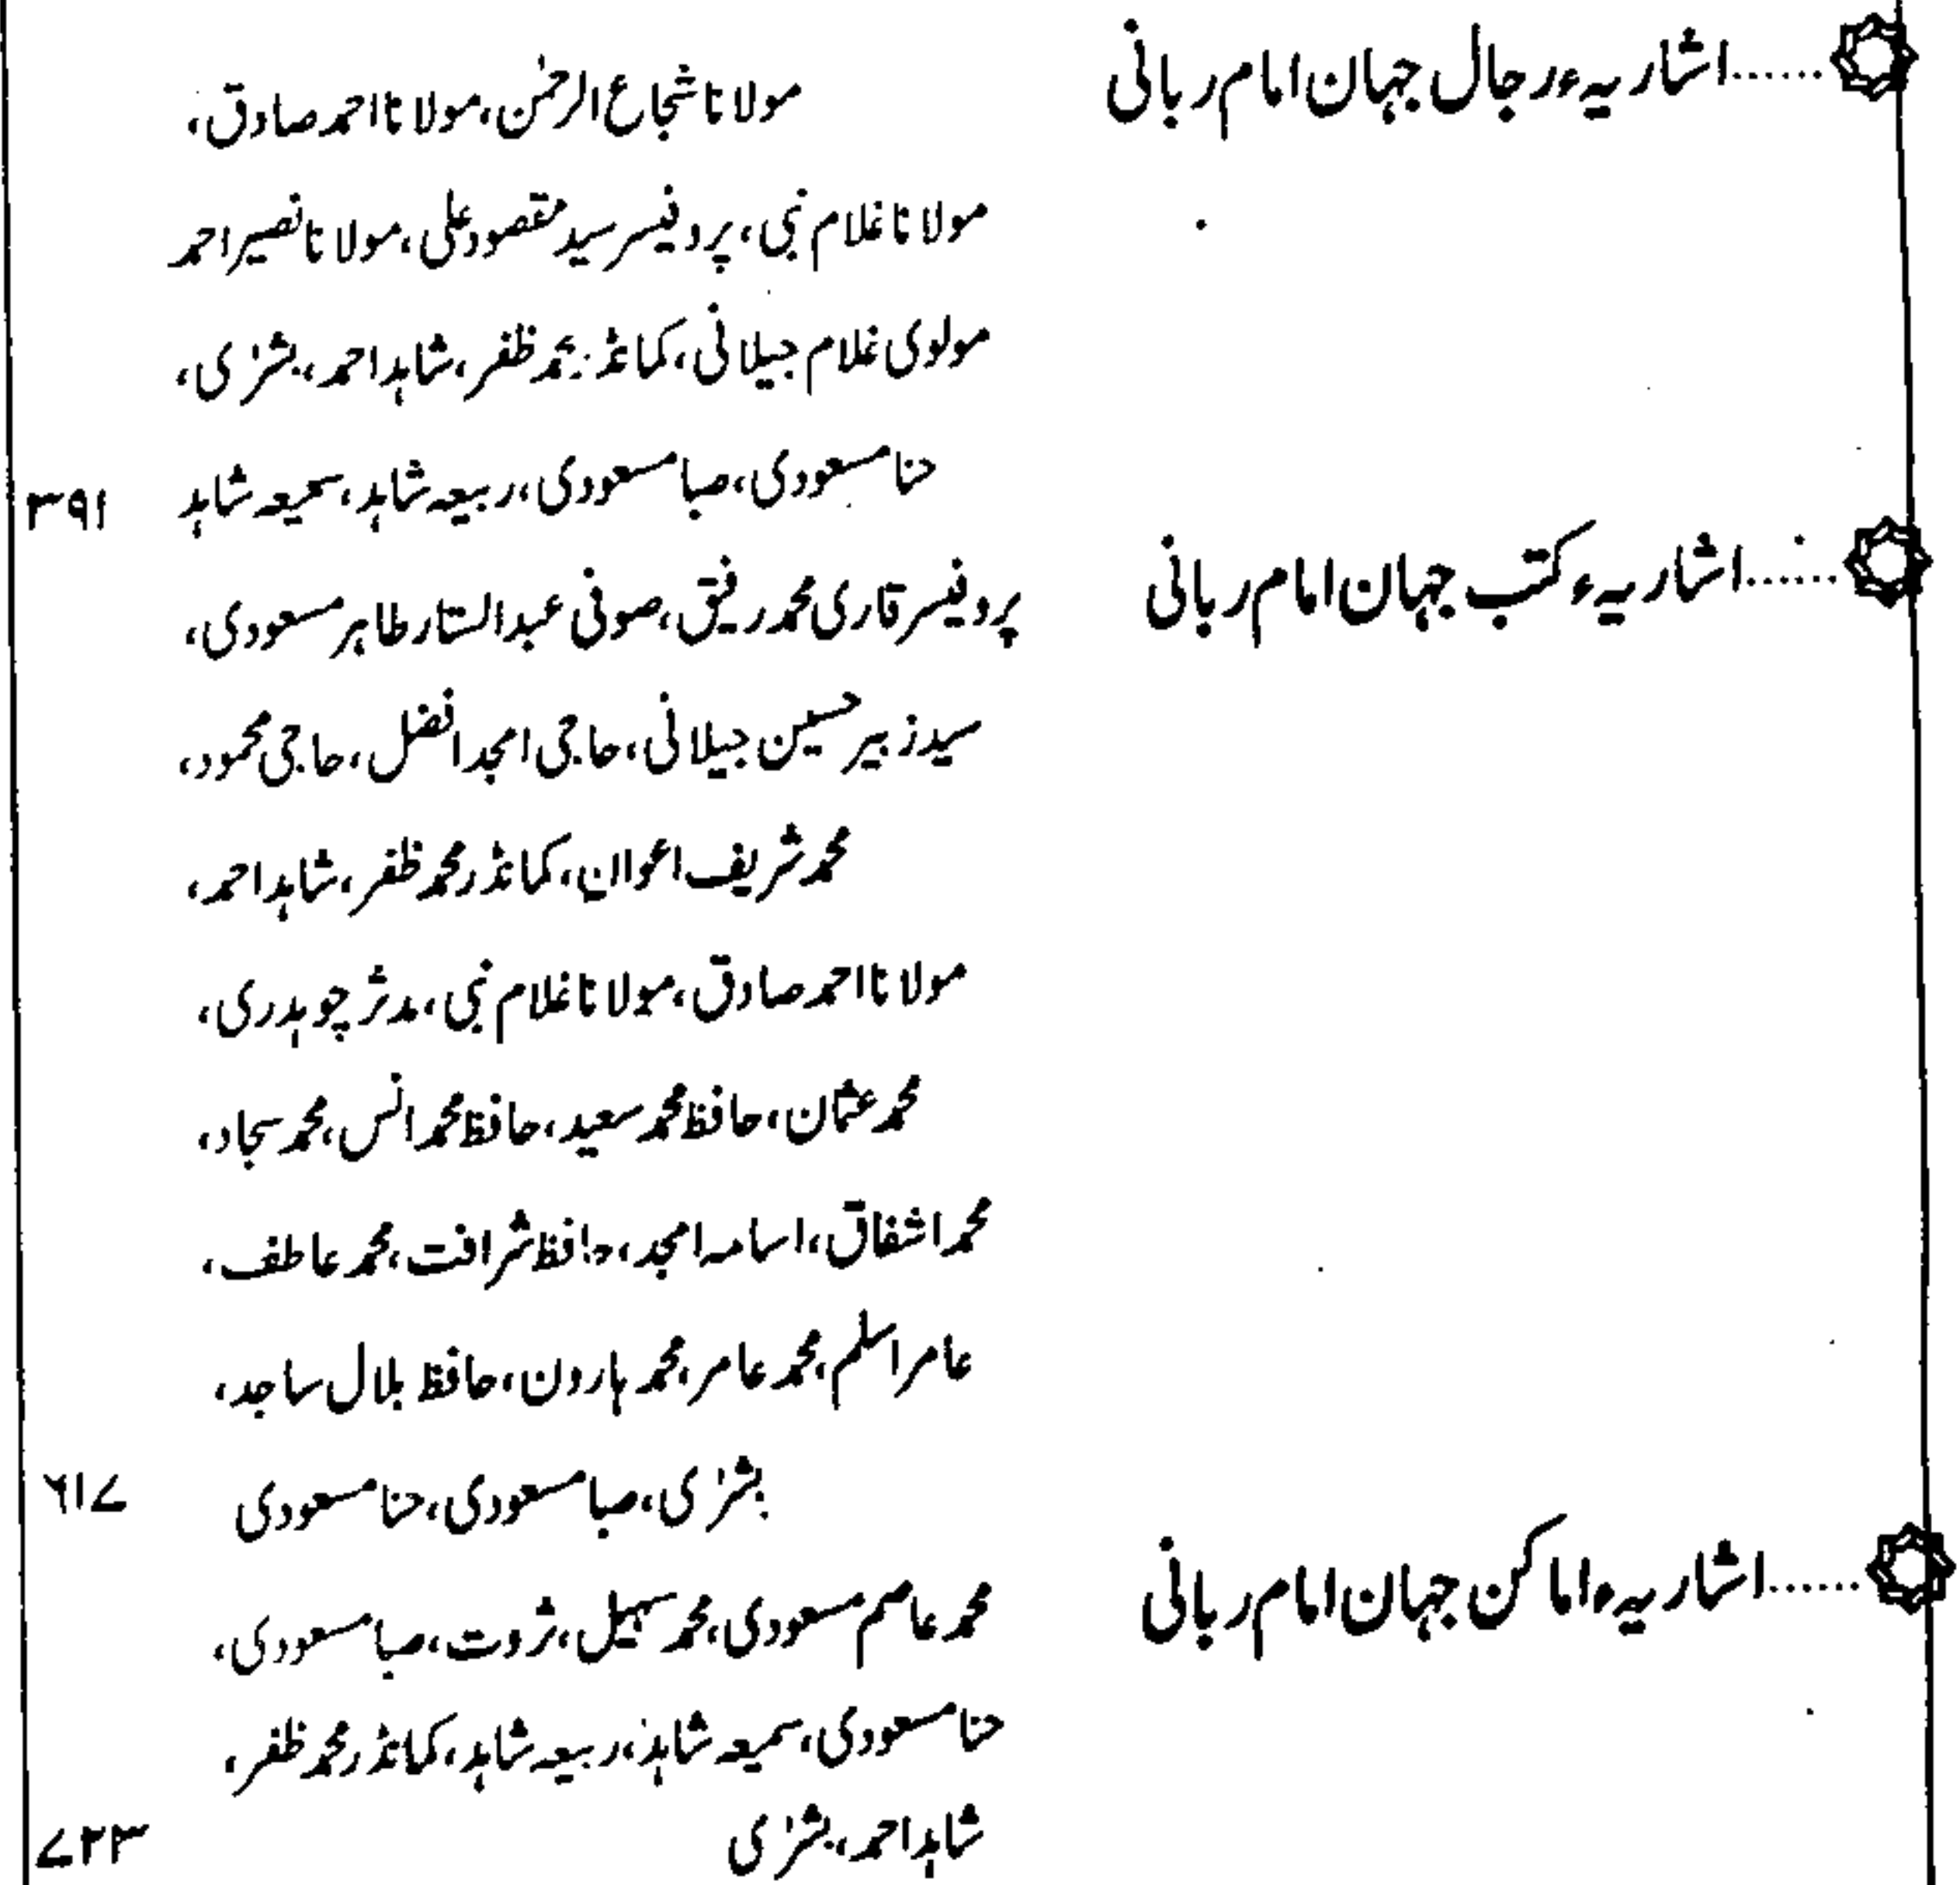 ......اشاریہء رجال جہان امام ربانی
مولانا شجاع الرحمٰن، مولانا احمد صادق،
مولانا غلام نبی، پروفیسر سید مقصود علی، مولانا نصیر احمد
مولوی غلام جیلانی، کمانڈر محمد ظفر، شاہد احمد، بشرٰی،
حنا مسعودی، صبا مسعودی، ربیعہ شاہد، سمیعہ شاہد ۳۹۱
......اشاریہء کتب جہان امام ربانی
پروفیسر قاری محمد رفیق، صوفی عبد الستار طاہر مسعودی،
سید زبیر حسین جیلانی، حاجی امجد افضل، حاجی محمود،
محمد شریف اعوان، کمانڈر محمد ظفر، شاہد احمد،
مولانا احمد صادق، مولانا غلام نبی، مدثر چوہدری،
محمد عثمان، حافظ محمد سعید، حافظ محمد انس، محمد سجاد،
محمد اشفاق، اسامہ امجد، حافظ شرافت، محمد عاطف،
عامر اسلم، محمد عامر، محمد ہارون، حافظ بلال ساجد،
بشرٰی، صبا مسعودی، حنا مسعودی ۶۱۷
......اشاریہء اماکن جہان امام ربانی
محمد عاصم مسعودی، محمد سہیل، ثروت، صبا مسعودی،
حنا مسعودی، سمیعہ شاہد، ربیعہ شاہد، کمانڈر محمد ظفر،
شاہد احمد، بشرٰی ۷۲۳